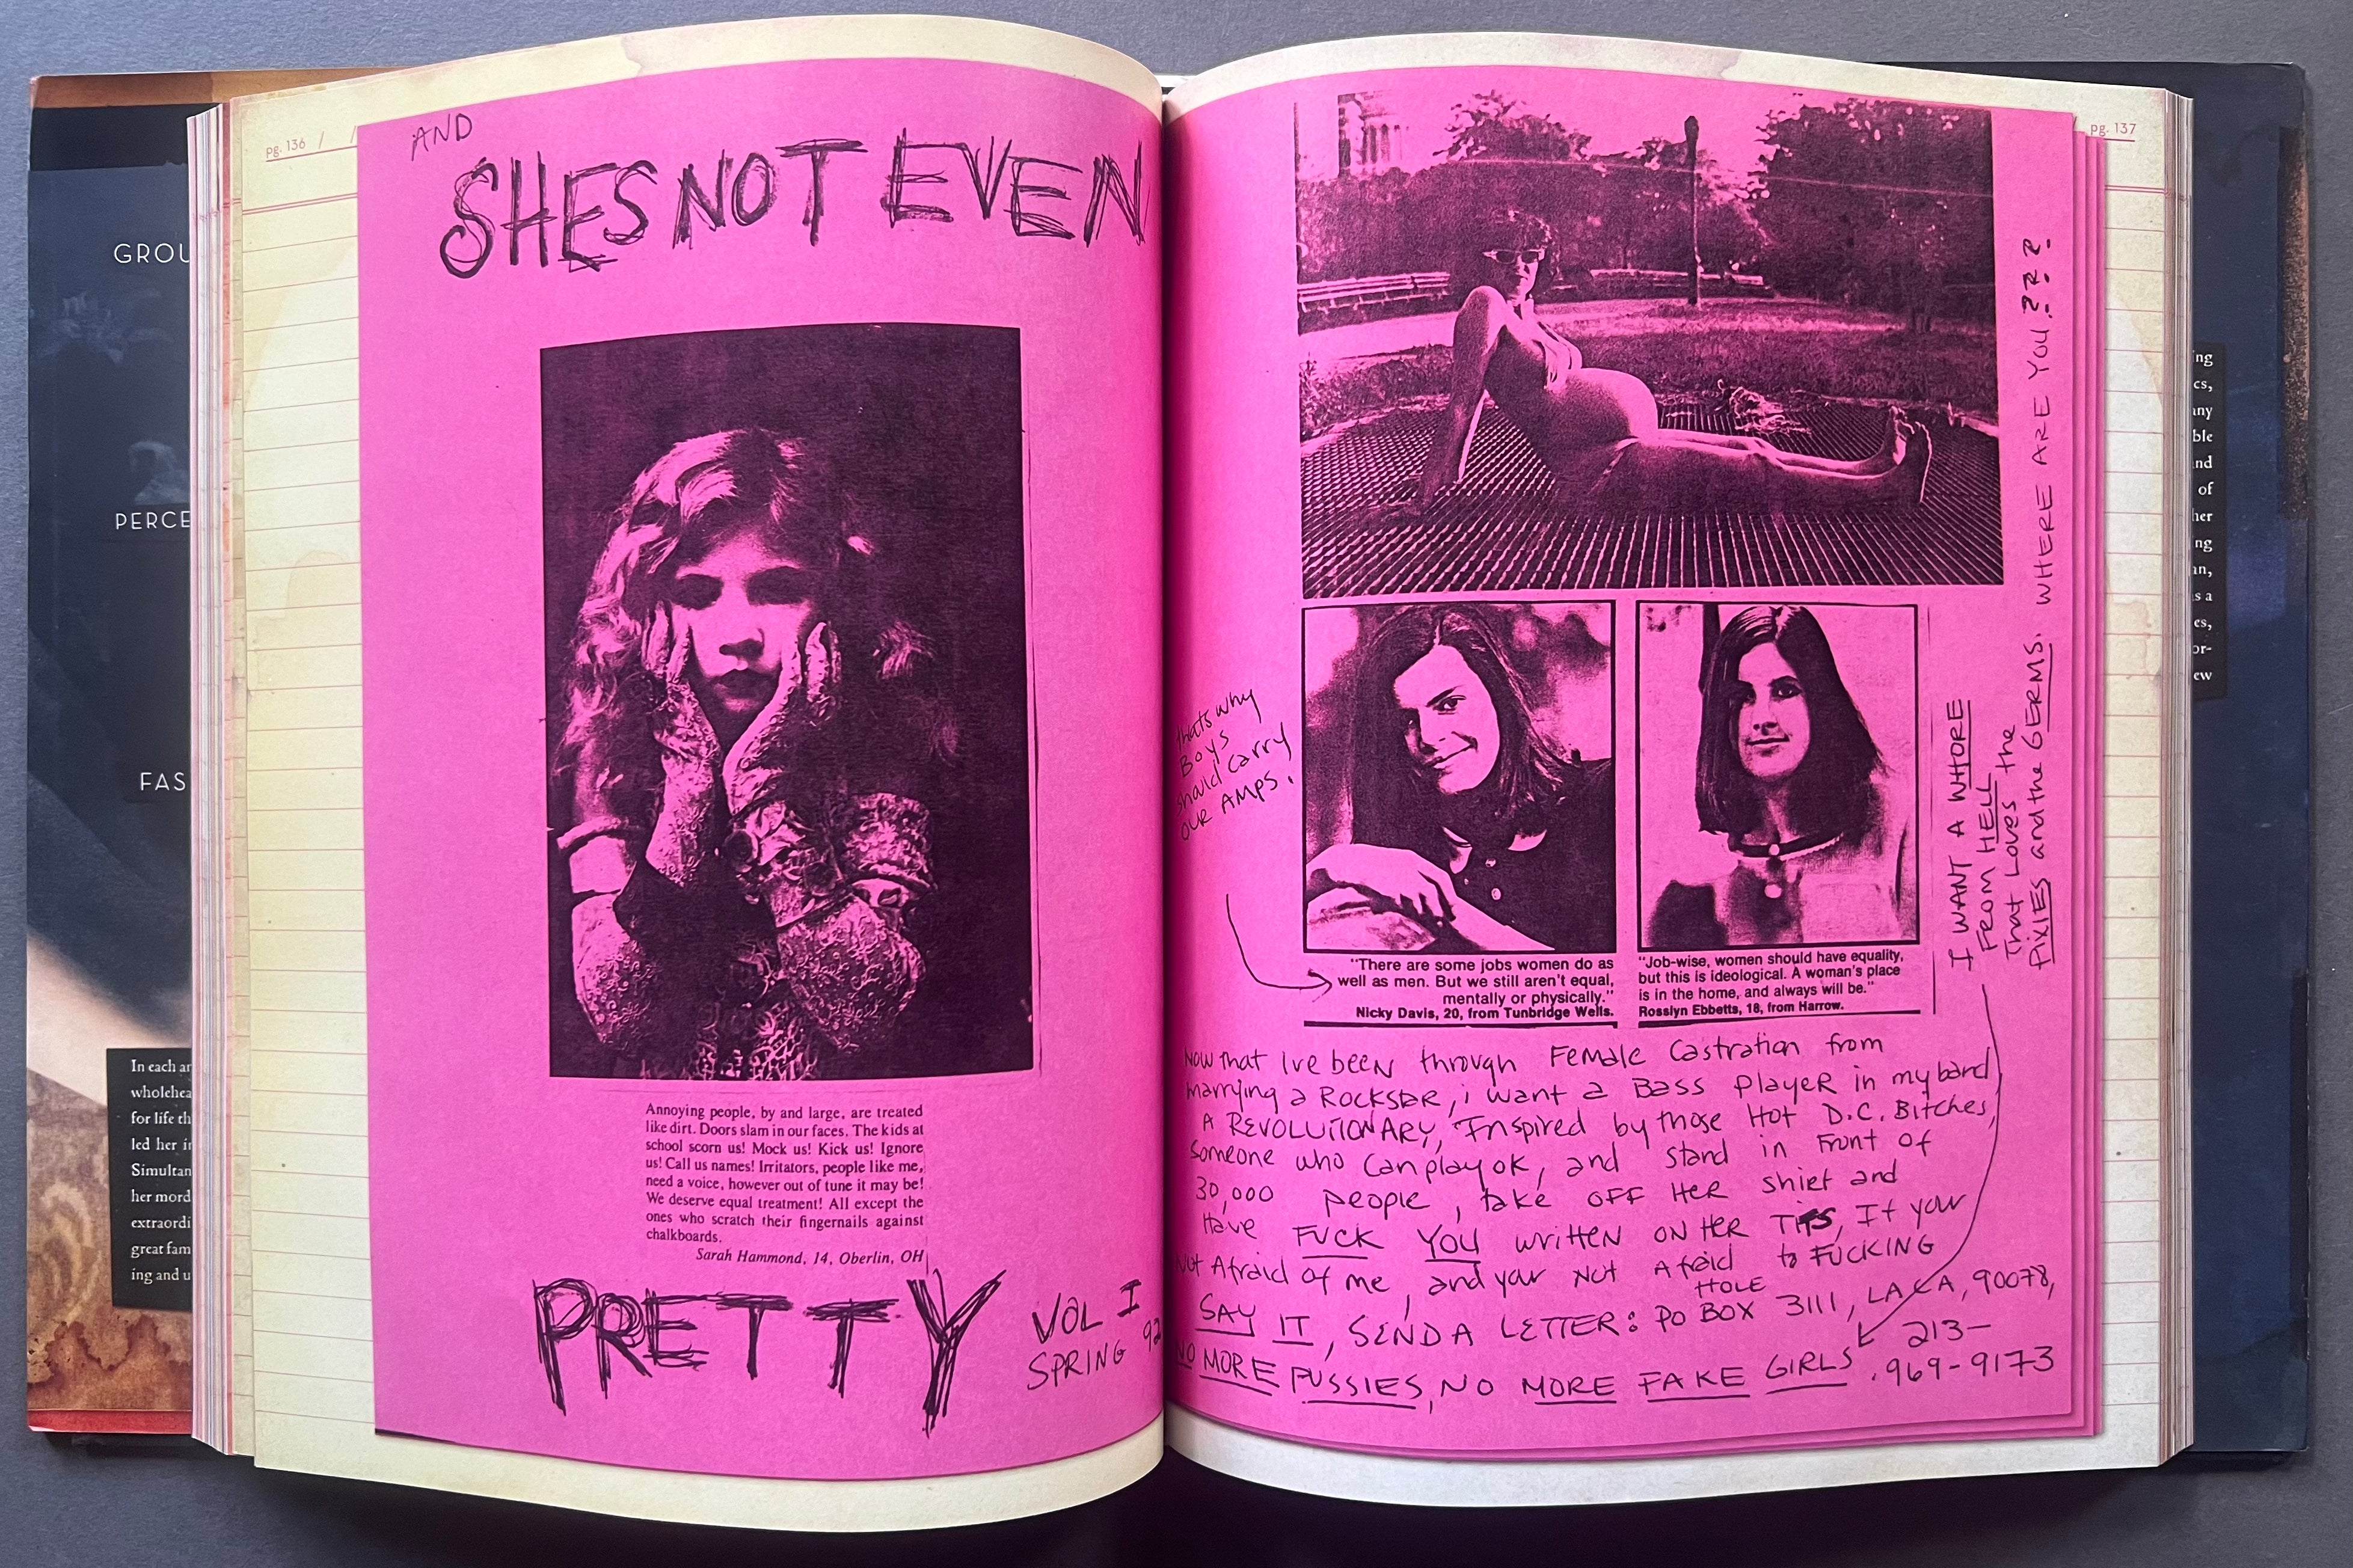 GROU
PERCE
FAS
In each ar
wholehea
for life th
led her ir
Simultan
her mord
extraordi
great fam
ing and u
pg. 136 / /
AND
SHES NOT EVEN
Annoying people, by and large, are treated
like dirt. Doors slam in our faces. The kids at
school scorn us! Mock us! Kick us! Ignore
us! Call us names! Irritators, people like me,
need a voice, however out of tune it may be!
We deserve equal treatment! All except the
ones who scratch their fingernails against
chalkboards.
Sarah Hammond, 14, Oberlin, OH
PRETTY
VOL I
SPRING 92
pg. 137
thats why
Boys
should carry
our AMPS.
"There are some jobs women do as
well as men. But we still aren't equal,
mentally or physically."
Nicky Davis, 20, from Tunbridge Wells.
"Job-wise, women should have equality,
but this is ideological. A woman's place
is in the home, and always will be."
Rosslyn Ebbetts, 18, from Harrow.
I WANT A WHORE
FROM HELL
That Loves the
PIXIES and the GERMS. WHERE ARE YOU???
Now that Ive been through Female Castration from
marrying a ROCKSTAR, i want a Bass player in my band
A REVOLUTIONARY, Inspired by those Hot D.C. Bitches,
Someone who can play ok, and stand in Front of
30,000 people, take OFF HeR shirt and
Have FUCK YOU written ON HeR TITS, If your
Not Afraid of me, and your Not Afraid to FUCKING
SAY IT, SEND A LETTER: HOLE PO BOX 3111, LA CA, 90078,
213-
NO MORE PUSSIES, NO MORE FAKE GIRLS. 969-9173
ing
cs,
any
ble
nd
of
her
ng
an,
s a
es,
or-
ew